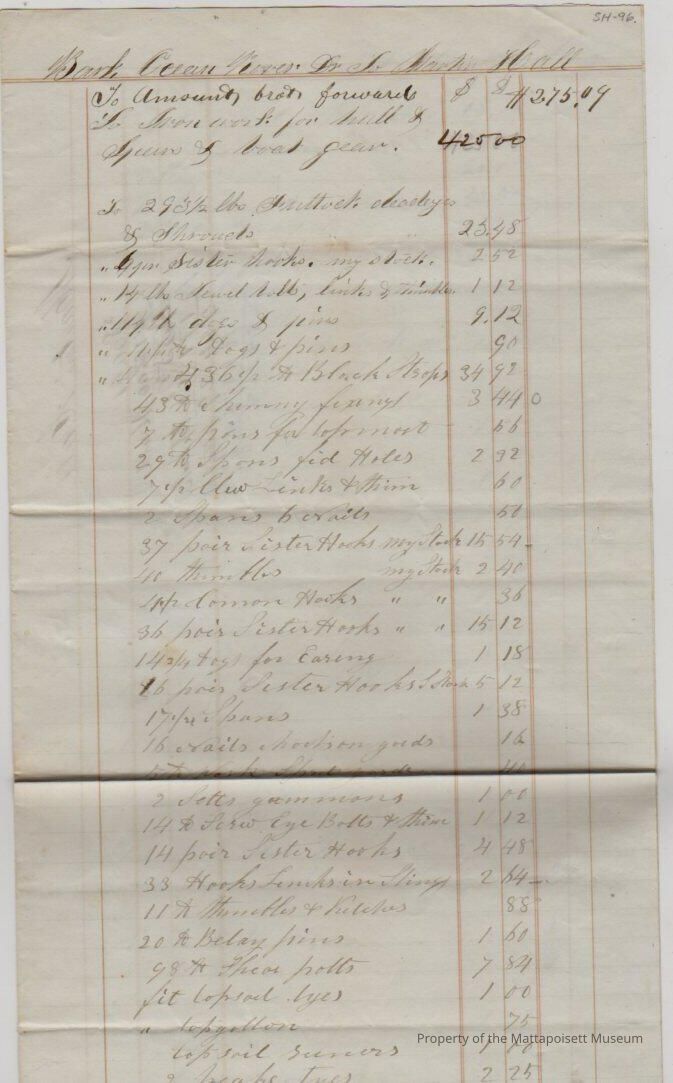 SH-96.
Bark Ocean Rover Dr To Hall
To Amount, brot forward $ $ 275,09
To Iron work for hull &
Spars & boat gear. 425 00
To 293 1/2 lbs Futtock
& Shrouds 23.48
" pr Sister hooks. my stock. 2 52
" 14 lbs Jewel bolt, links & thimbles. 1 12
" dogs & pins 9.12
" Dogs & pins 90
" 436 1/2 lb Block Straps 34 92
43 lb fixings 3 44 o
7 lb pins for topmast 56
29 lb Spans fid Holes 2 32
7 1/2 Clew Links & thim 60
2 Spans 6 nails 50
37 pair Sister Hooks my Stock 15 54
40 thimbles my Stock 2 40
Comon Hooks " " 36
36 pair Sister Hooks " " 15 12
14 3/4 Dogs for Earing 1 18
16 pair Sister Hooks 5 12
17 Spans 1 38
16 nails 16
40
2 Setts gammons 1 00
14 lb Scrw Eye Bolts & thim 1 12
14 pair Sister Hooks 4 48
33 Hooks Links in Slings 2 64
11 lb thimbles & 88
20 lb Belay pins 1 60
98 lb bolts 7 84
fit topsail tyes 1 00
" topgallon 75
topsail runers 1 00
2 tyes 2 25
Property of the Mattapoisett Museum